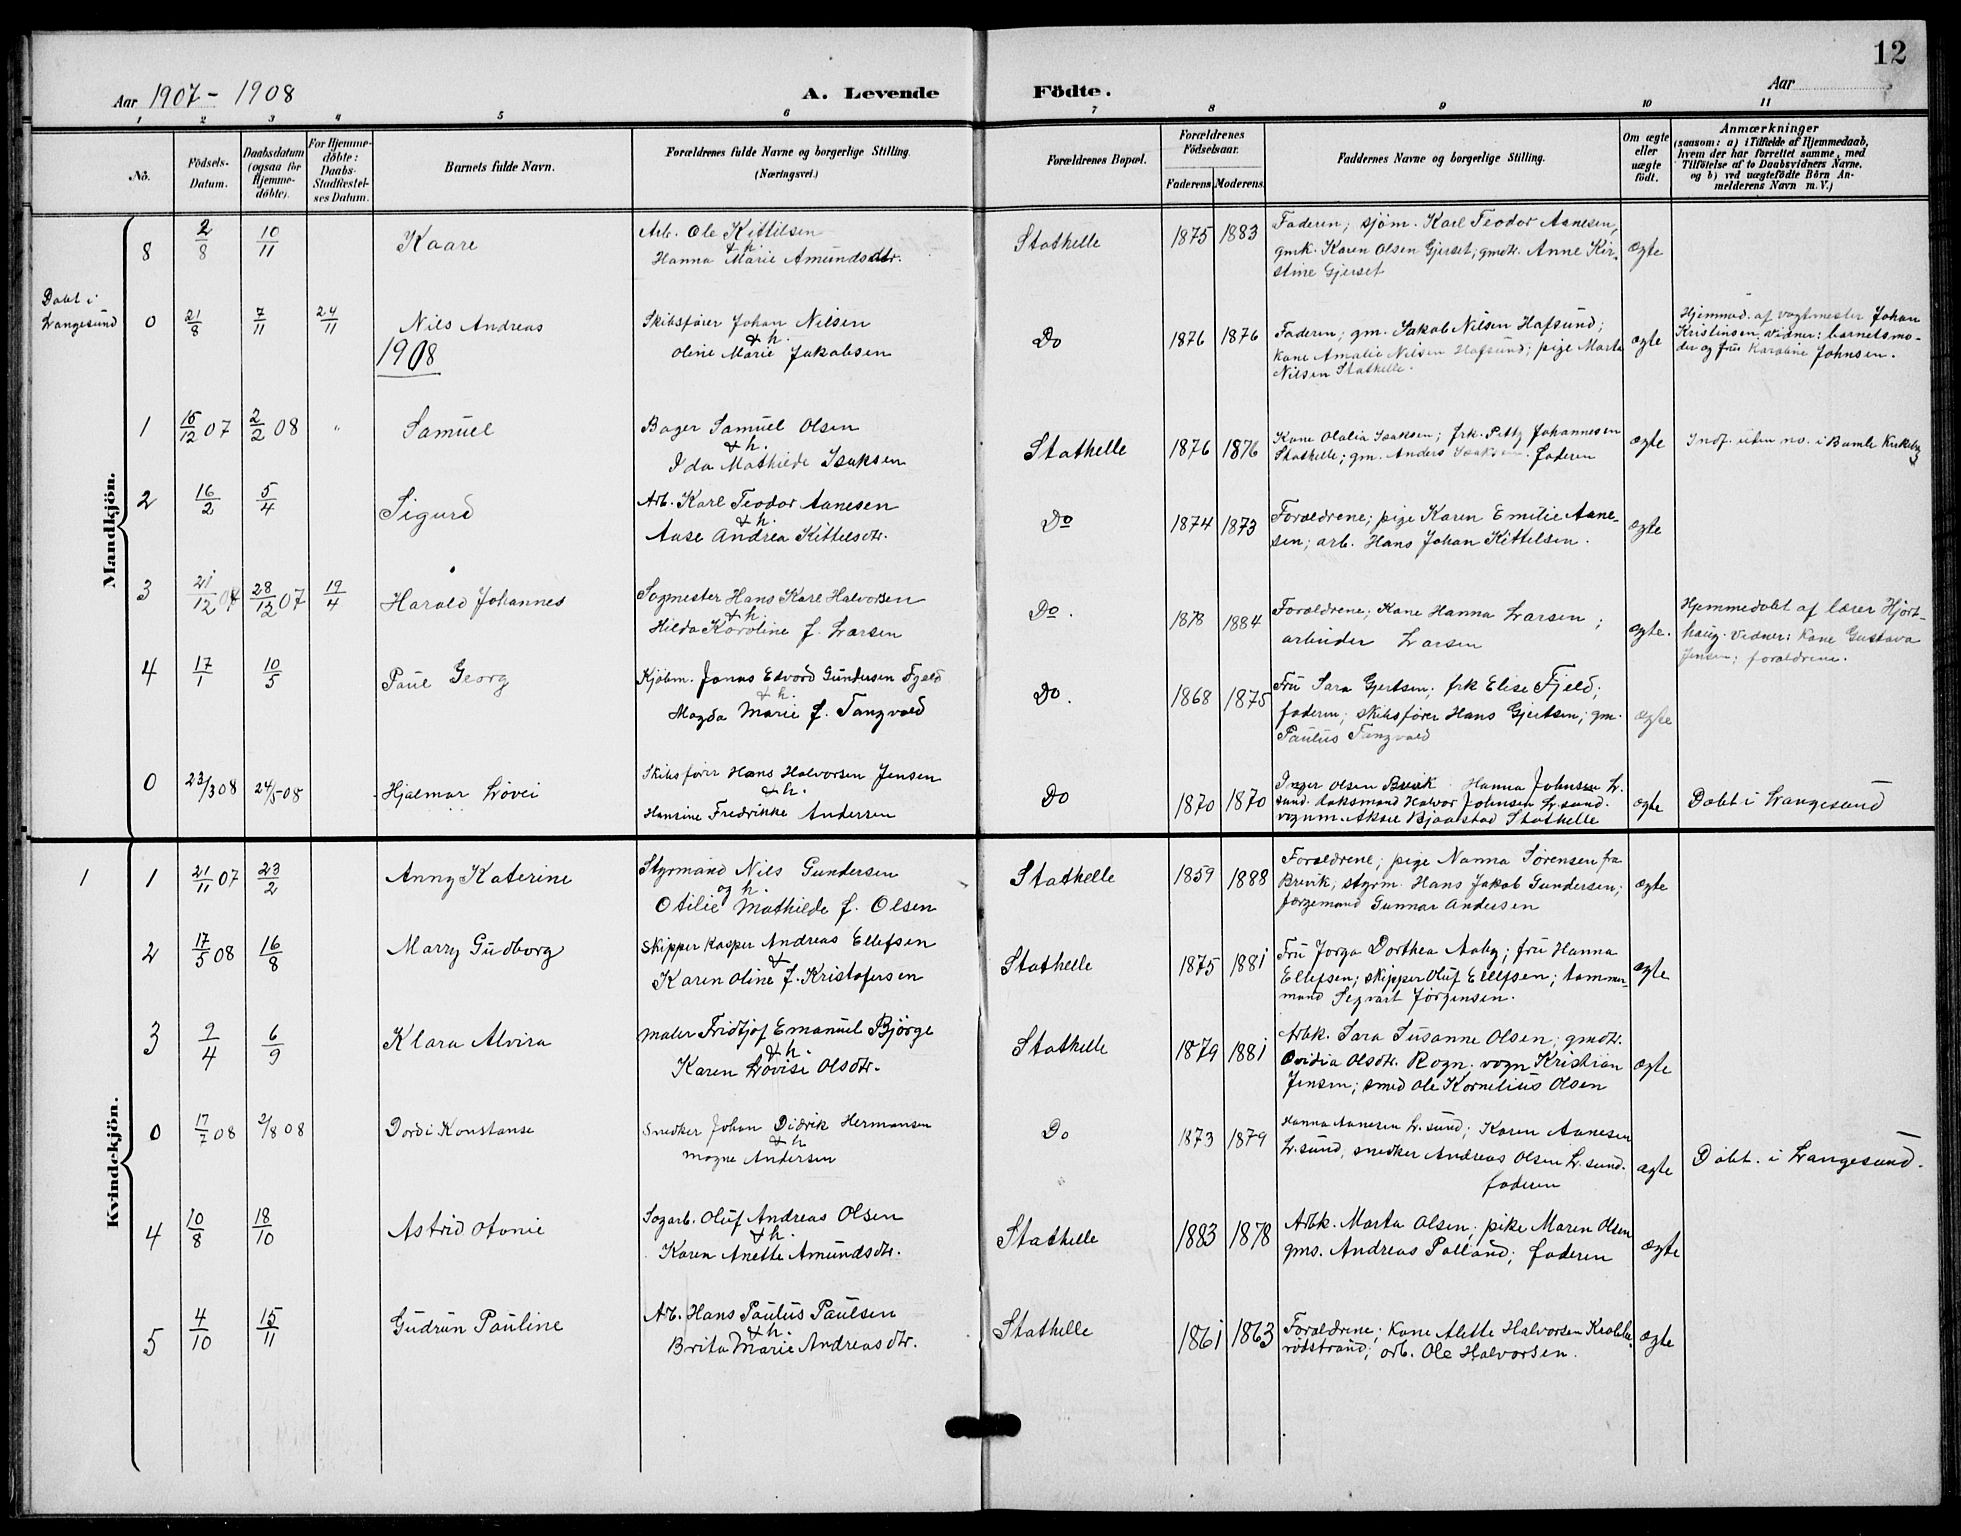 12
Aar 1907 - 1908
A. Levende Födte.
Aar
1 2 3 4 5 6 7 8 9 10 11
No.
Födsels-Datum.
Daabsdatum (ogsaa for Hjemme-döbte).
For Hjemme-döbte: Daabs-Stadfæstel-ses Datum.
Barnets fulde Navn.
Forældrenes fulde Navne og borgerlige Stilling. (Næringsvei.)
Forældrenes Bopæl.
Forældrenes Födselsaar.
Faderens. Moderens.
Faddernes Navne og borgerlige Stilling.
Om ægte eller uægte født.
Anmærkninger
(saasom: a) i Tilfælde af Hjemmedaab, hvem der har forrettet samme, med Tilføielse af to Daabsvidners Navne, og b) ved uægtefödte Börn An-melderens Navn m. V.)
Mandkjön.
8 2/8 10/11 Kaare
Arb. Ole Kittilsen
& h.
Hanna Marie Amundsdtr.
Stathelle 1875 1883
Faderen; sjöm. Karl Teodor Aanesen,
gmk. Karen Olsen Gjerset; gmdtr. Anne Kir-
stine Gjerset
ægte
Døbt i
Langesund
0 21/8 7/11 24/11 Nils Andreas
Skibsfører Johan Nilsen
& h.
Oline Marie Jakobsen
Do 1876 1876
Faderen; gm. Jakob Nilsen Hafsund;
kone Amalie Nilsen Hafsund; pige Marta
Nilsen Stathelle.
ægte
Hjemmed. af vagtmester Johan
Kristinsen. Vidner: barnets mo-
der og fru Karoline Johnsen.
1908
1 15/12 07 2/2 08 " Samuel
Bager Samuel Olsen
& h.
Ida Mathilde Isaksen
Stathelle 1876 1876
Kone Olalia Isaksen; frk. Pitty Johannesen
Stathelle; gm. Anders Isaksen. faderen
ægte
Indf. uten no. i Bamle Kirkebog
2 16/2 5/4 Sigurd
Arb. Karl Teodor Aanesen
& h.
Aase Andrea Kittelsdtr.
Do 1874 1873
Forældrene; pige Karen Emilie Aane-
sen; arb. Hans Johan Kittelsen.
ægte
3 21/12 07 28/12 07 19/4 Harald Johannes
Sagmester Hans Karl Halvorsen
& h.
Hilda Karoline f. Larsen
Do. 1878 1884
Forældrene; Kone Hanna Larsen;
arbeider Larsen
ægte.
Hjemmedøbt af lærer Hjort-
haug. Vidner: Kone Gustava
Jensen; forældrene.
4 17/1 10/5 Paul Georg
Kjøbm. Jonas Edvard Gundersen Fjeld
& h.
Magda Marie f. Tangvald
Do. 1868 1875
Fru Sara Gjertsen; frk Elise Fjeld;
faderen; skibsfører Hans Gjertsen; gm.
Paulus Tangvald
ægte
0 23/3 08 24/5 08 Hjalmar Løvei
Skibsfører Hans Halvorsen Jensen
& h.
Hansine Fredrikke Andersen
Do 1870 1870
Inger Olsen Brevik Hanna Johnsen L.
sund. laksmand Halvor Johnsen L.sund.
vognm. Aksel Bjaastad Stathelle
ægte
Døbt i Langesund
Kvindekjön.
1 1 21/11 07 23/2 Anny Katerine
Styrmand Nils Gundersen
og h.
Otilie Mathilde f. Olsen
Stathelle 1859 1888
Forældrene; pige Nanna Sørensen fra
Brevik; styrm. Hans Jakob Gundersen;
færgemand Gunnar Andersen
ægte
2 17/5 08 16/8 Marry Gudborg
Skipper Kasper Andreas Ellefsen
&
Karen Oline f. Kristofersen
Stathelle 1875 1881
Fru Jorga Dorthea Aaby; fru Hanna
Ellefsen; skipper Oluf Ellefsen; tømmer-
mand Segvart Jörgensen.
ægte
3 9/4 6/9 Klara Alvira
Maler Fridtjof Emanuel Bjørge
& h
Karen Lovise Olsdtr.
Stathelle 1879 1881
Arbk. Sara Susanne Olsen; gmdtr.
Ovidia Olsdtr. Rogn; vogn Kristian
Jensen; smed Ole Kornelius Olsen
ægte
0 17/7 08 2/8 08 Dordi Konstanse
Snedker Johan Didrik Hermansen
& h
Magne Andersen
Do 1873 1879
Hanna Aanesen L.sund; Karen Aanesen
L.sund, snedker Andreas Olsen L.sund.
faderen
ægte
Døbt. i Langesund.
4 10/8 18/10 Astrid Otonie
Sagarb. Oluf Andreas Olsen
& h.
Karen Anette Amundsdtr.
Stathelle 1883 1878
Arbk. Marta Olsen; pike Maren Olsen
gms. Andreas Palland; faderen
ægte
5 4/10 15/11 Gudrun Pauline
Arb. Hans Paulus Paulsen
& h.
Brita Marie Andreasdtr.
Stathelle 1861 1863
Forældrene; Kone Alette Halvorsen Krabbe-
rødstrand; arb. Ole Halvorsen.
ægte